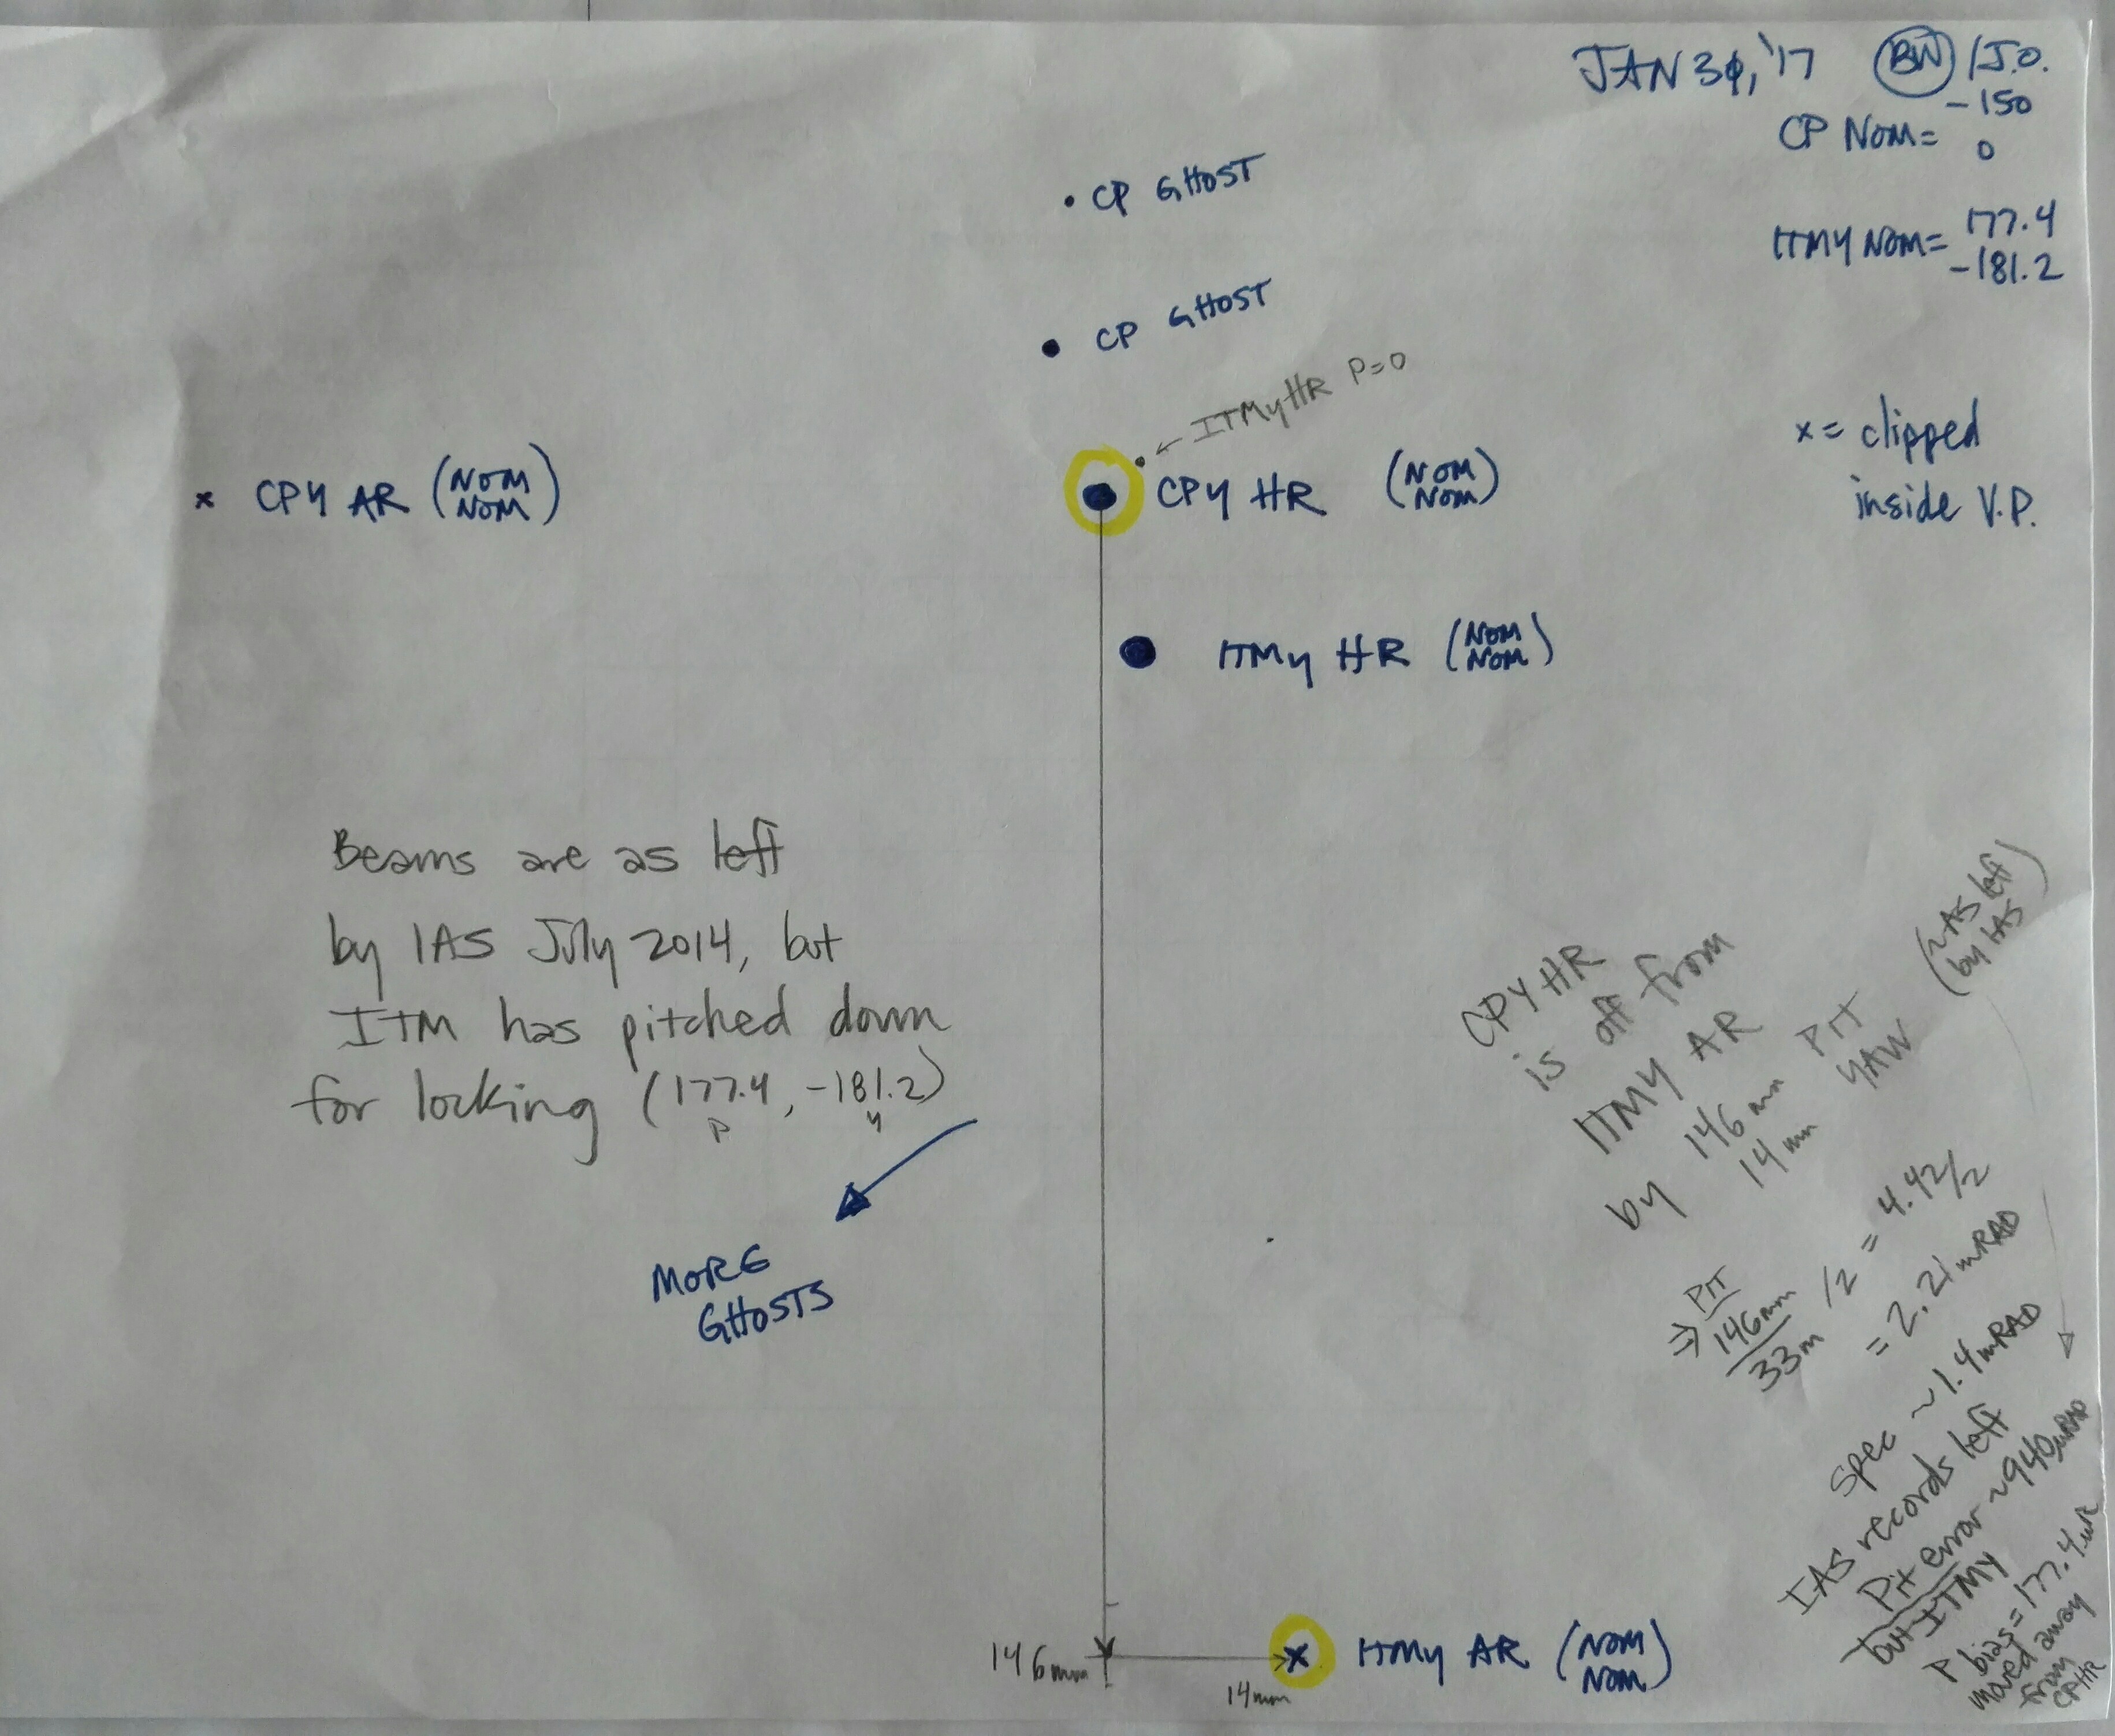 JAN 30, '17 BW / J.O.
CP NOM = -150
0
ITMY NOM = 177.4
-181.2
• CP GHOST
• CP GHOST
← ITMy HR P=0
x CPY AR (NOM
NOM)
CPY HR (NOM
NOM)
x = clipped
inside V.P.
ITMy HR (NOM
NOM)
Beams are as left
by IAS July 2014, but
ITM has pitched down
for locking (177.4, -181.2)
P y
MORE
GHOSTS
CPY HR
is off from
ITMY AR
by 146mm PIT
14mm YAW
(~AS left
by IAS)
⇒ PIT
146mm
33m /2 = 4.42/2
= 2.21mRAD
Spec ~1.4mRAD
IAS records left
Pit error ~940μRAD
but ITMY
P bias = 177.4μR
moved away
from
CP HR
146mm
14mm
x ITMy AR (NOM
NOM)